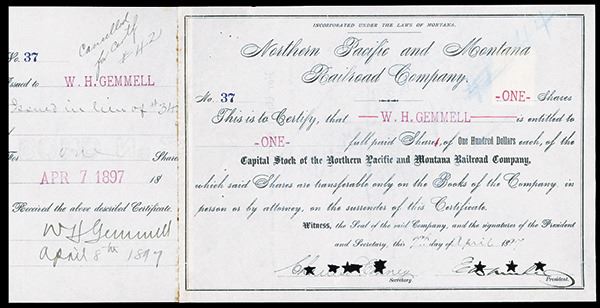 Cancelled
for Certf
# 42
No. 37
Issued to
W. H. GEMMELL
Issued in lieu of #34
For One Share
APR 7 1897 18
Received the above described Certificate.
W H Gemmell
April 8th 1897
INCORPORATED UNDER THE LAWS OF MONTANA.
Northern Pacific and Montana
Railroad Company.
No. 37 -ONE- Shares
This is to Certify, that W. H. GEMMELL is entitled to
-ONE- full paid Shares, of One Hundred Dollars each, of the
Capital Stock of the Northern Pacific and Montana Railroad Company,
which said Shares are transferable only on the Books of the Company in
person or by attorney, on the surrender of this Certificate.
Witness, the Seal of the said Company, and the signatures of the President
and Secretary, this 7th day of April 1897
Secretary. President.